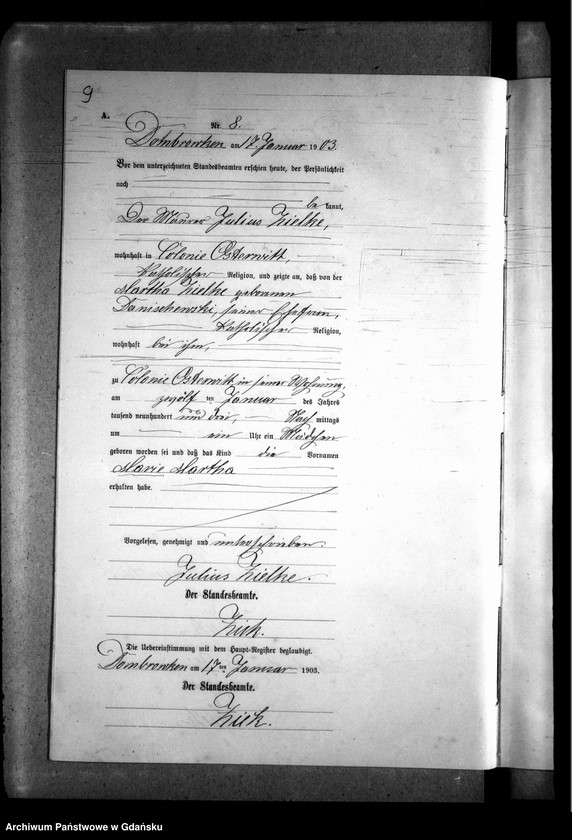 9
A.
Nr. 8.
Dombrowken am 17. Januar 1903.
Vor dem unterzeichneten Standesbeamten erschien heute, der Persönlichkeit
nach
be kannt,
Der Maurer Julius Zielke,
wohnhaft in Colonie Osterwitt,
katholischer Religion, und zeigte an, daß von der
Martha Zielke geborenen
Danischewski, seiner Ehefrau,
katholischer Religion,
wohnhaft bei ihm,
zu Colonie Osterwitt in seiner Wohnung,
am zwölf ten Januar des Jahres
tausend neunhundert und drei, Nach mittags
um ein Uhr ein Mädchen
geboren worden sei und daß das Kind die Vornamen
Marie Martha
erhalten habe.
Vorgelesen, genehmigt und unterschrieben.
Julius Zielke.
Der Standesbeamte.
Zieh.
Die Uebereinstimmung mit dem Haupt-Register beglaubigt.
Dombrowken am 17ten Januar 1903.
Der Standesbeamte.
Zieh.
Archiwum Państwowe w Gdańsku